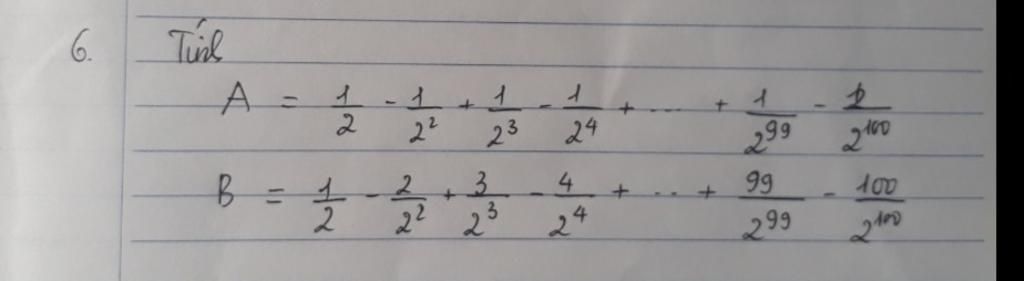 6. Tính
A = 1/2 - 1/2² + 1/2³ - 1/2⁴ + ... + 1/2⁹⁹ - 1/2¹⁰⁰
B = 1/2 - 2/2² + 3/2³ - 4/2⁴ + ... + 99/2⁹⁹ - 100/2¹⁰⁰